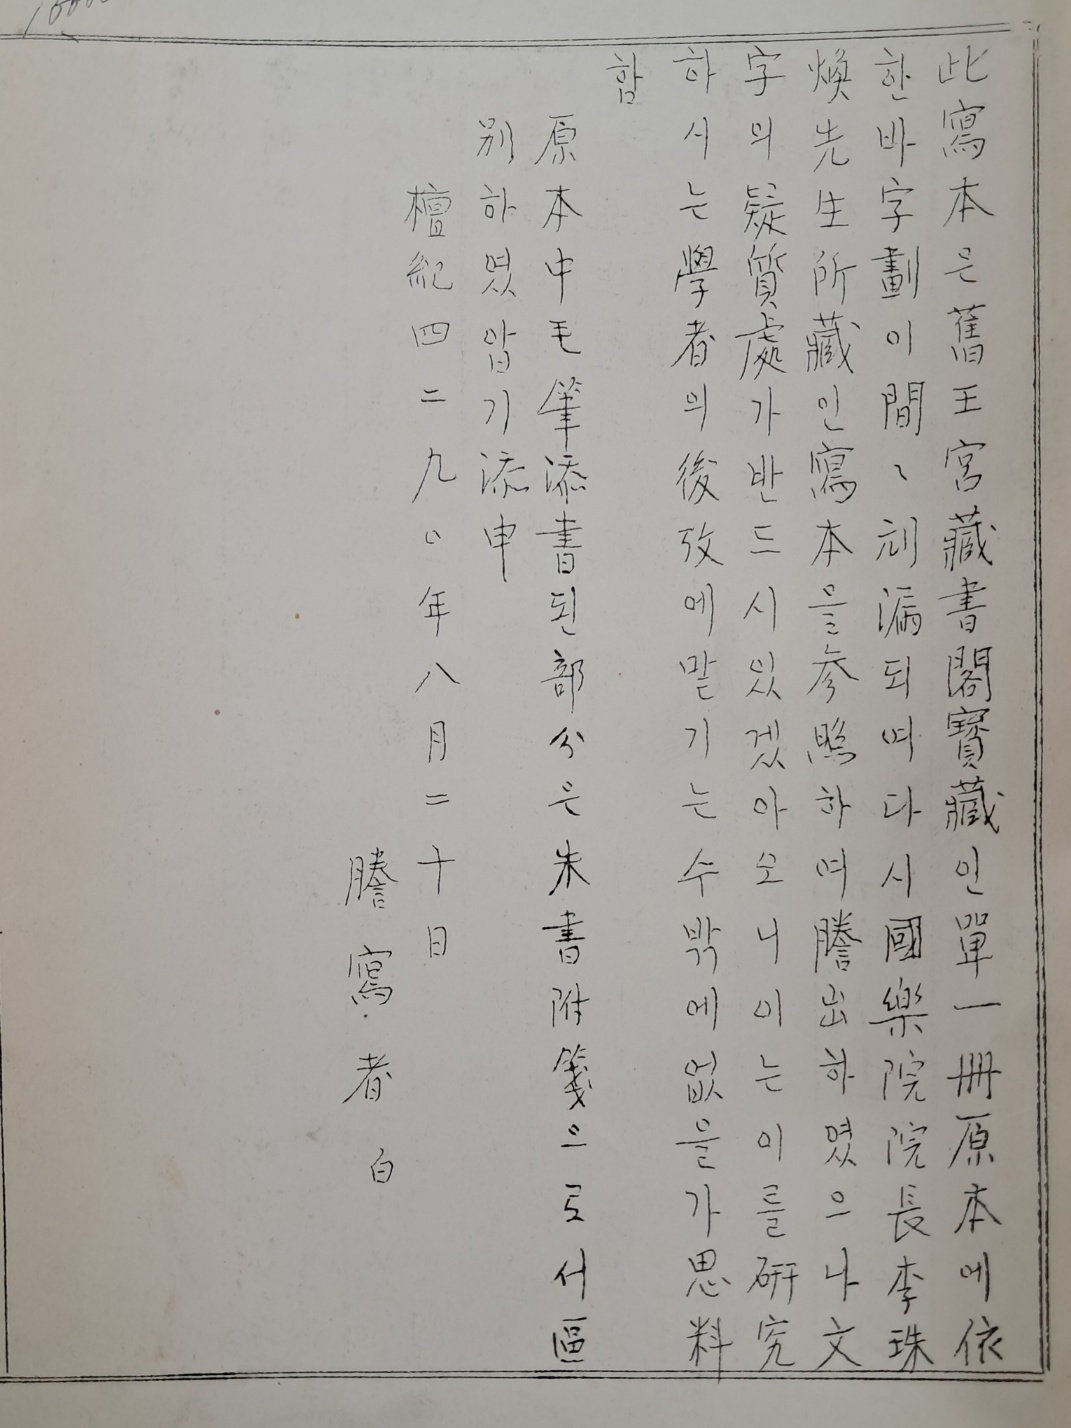 此寫本은舊王宮藏書閣寶藏인單一冊原本에依
한바字劃이間〻刓漏되여다시國樂院院長李珠
煥先生所藏인寫本을參照하여謄出하였으나文
字의疑質處가반드시있겠아오니이는이를硏究
하시는學者의後攷에맡기는수밖에없을가思料
함
原本中毛筆添書된部分은朱書附箋으로서區
別하였압기添申
檀紀四二九〇年八月二十日
謄寫者白